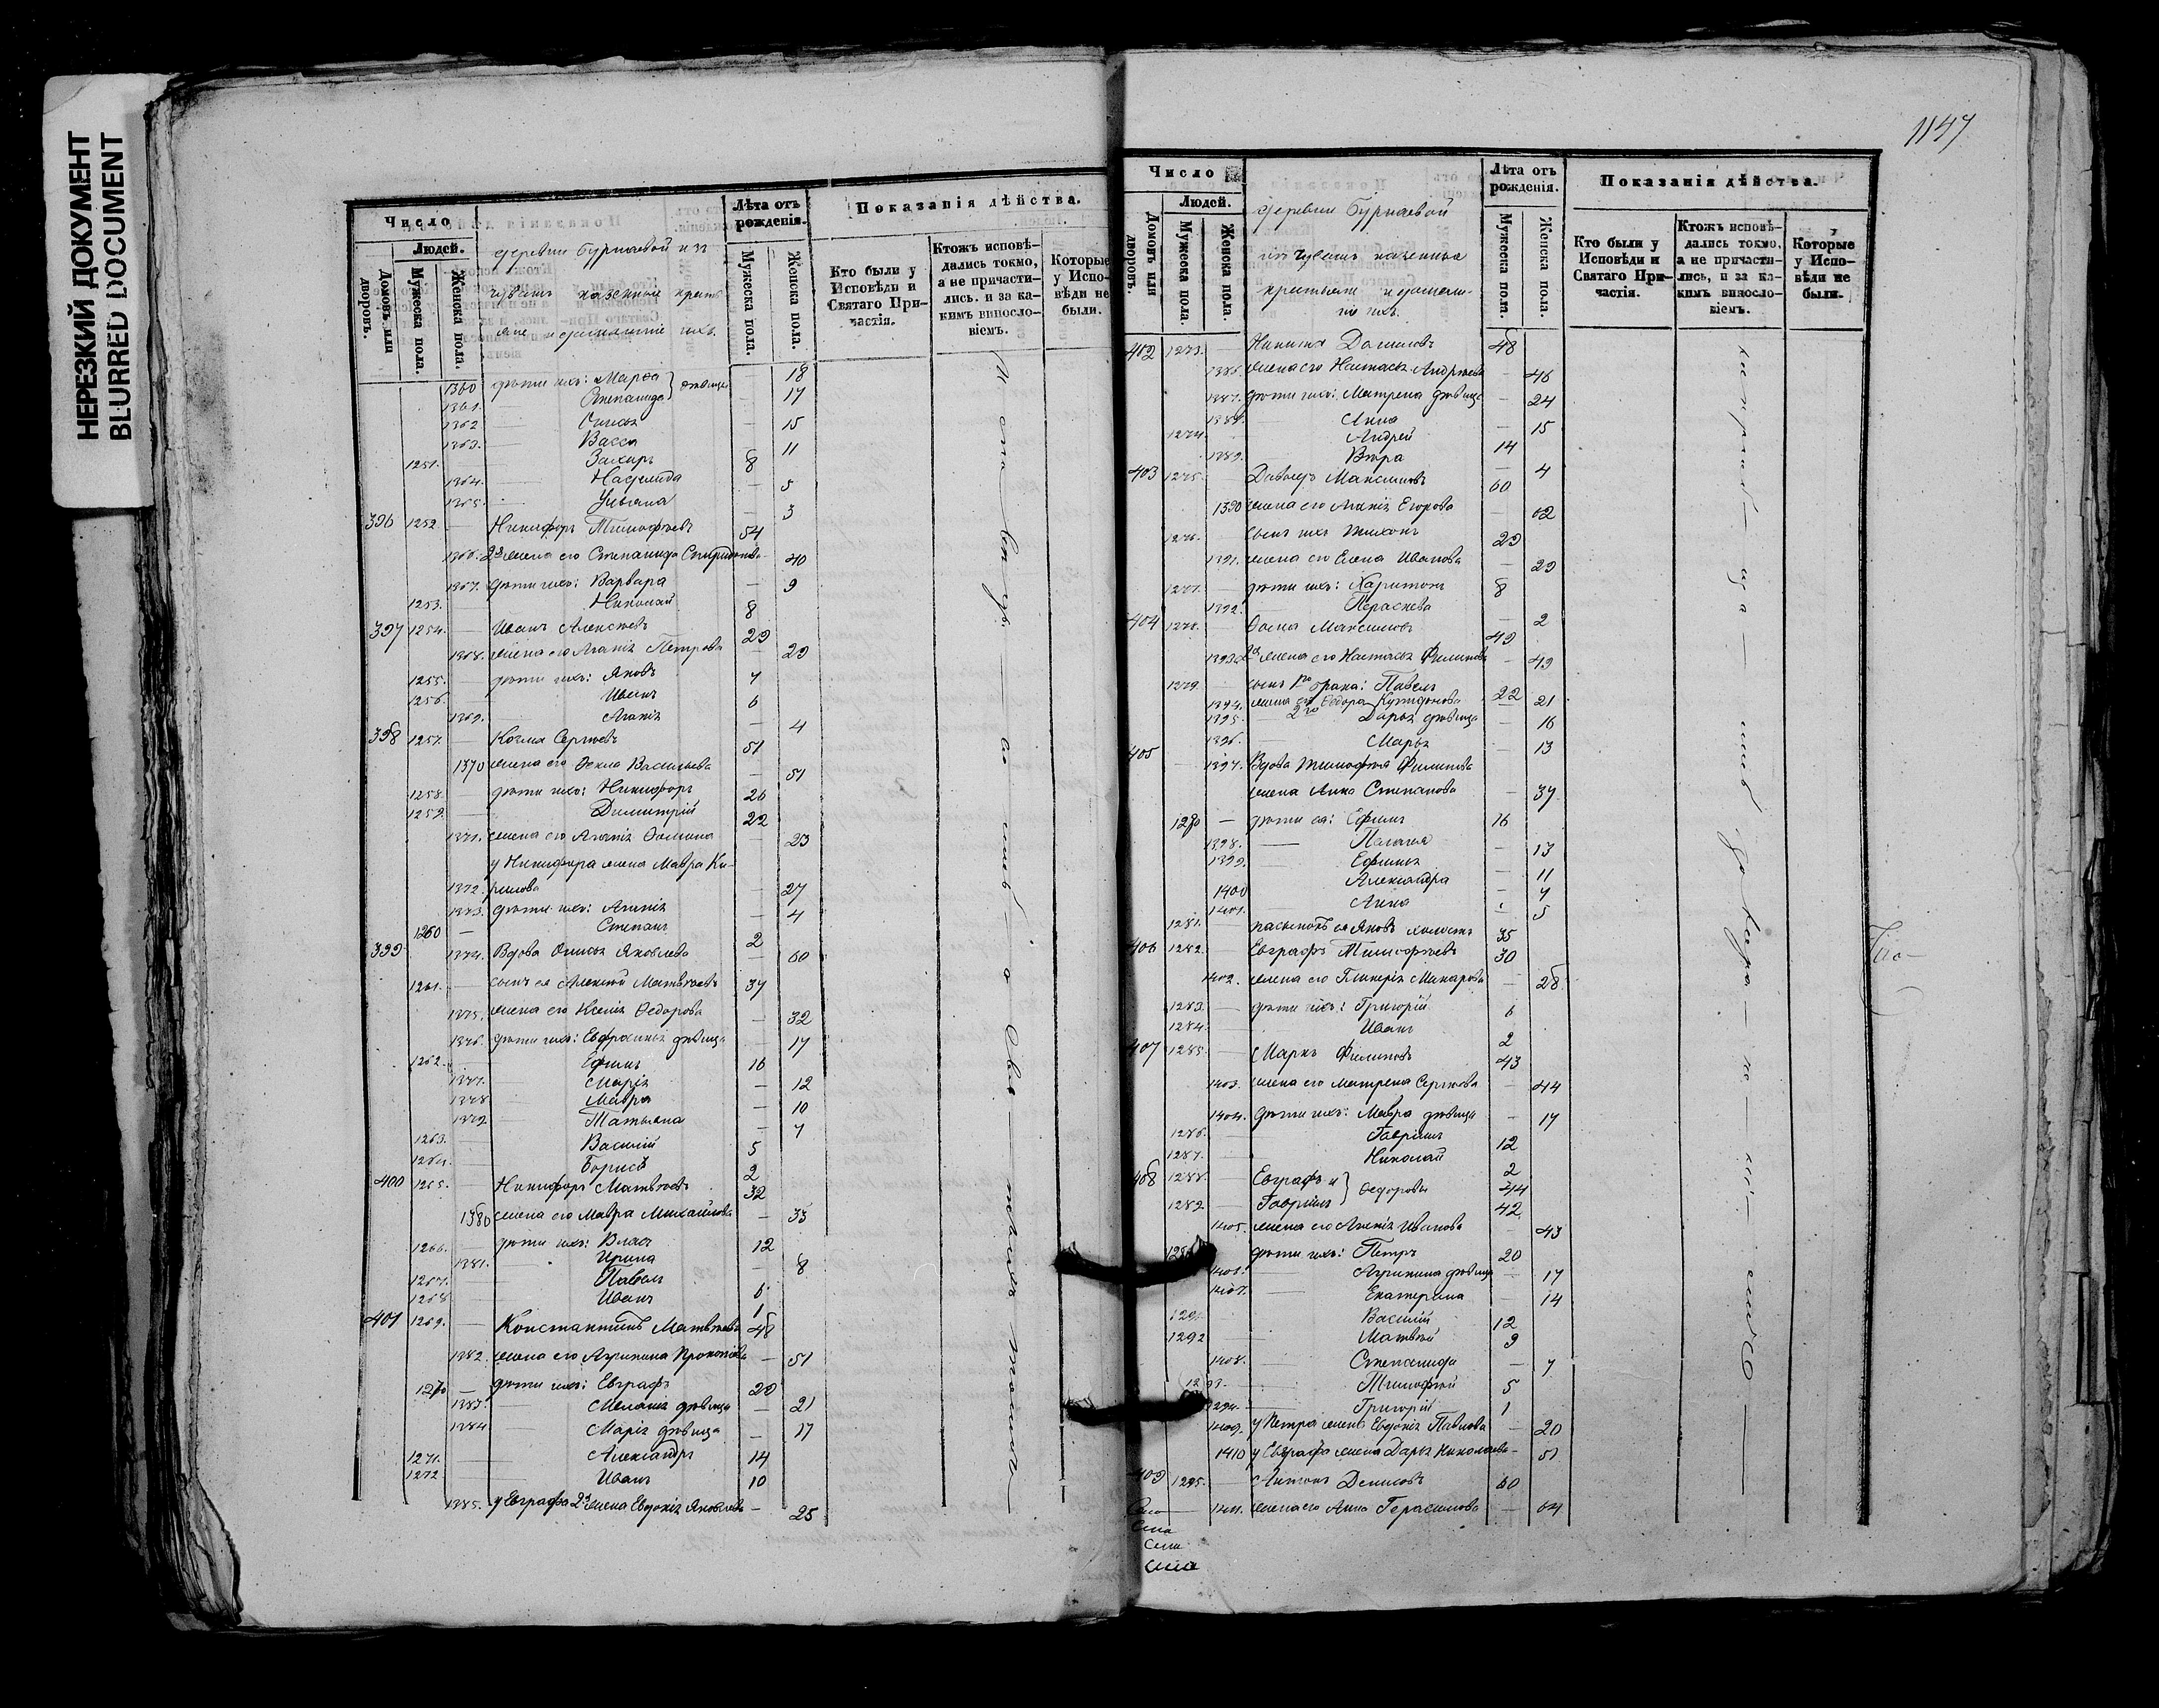 НЕРЕЗКИЙ ДОКУМЕНТ
BLURRED DOCUMENT
Число
Лѣта отъ рожденія.
Показанія дѣйства.
Людей.
Домовъ или дворовъ.
Мужеска пола.
Женска пола.
деревни Бурнаевой изъ
чувашъ казенные кресть
яне и домашніе ихъ.
Мужеска пола.
Женска пола.
Кто были у Исповѣди и Святаго Причастія.
Ктожъ исповѣдались токмо, а не причастились. и за какимъ винословіемъ.
Которые у Исповѣди не были.
1360 дѣти ихъ: Марѳа } дѣвицы 18
1361. Степанида 17
1362 15
1363. Васса 11
1251. Захаръ 8
1364. 5
1365. Ульяна 3
396 1252. Никифоръ Тимофѣевъ 54
1366. 2я жена его Степанида Спиридонова 40
1367. дѣти ихъ: Варвара 9
1253. Николай 8
397 1254. Иванъ Алексѣевъ 29
1368. жена его Агапія Петрова 29
1255. дѣти ихъ: Яковъ 7
1256. Иванъ 6
1369. Агапія 4
398 1257. Козма Сергѣевъ 51
1370 жена его Ѳекла Васильева 51
1258. дѣти ихъ: Никифоръ 26
1259. Димитрій 22
1371. жена его Агапія Ѳомина 23
у Никифора жена Мавра Ки-
1372. рилова 27
1373. дѣти ихъ: Агапія 4
1260 Степанъ 2
399 1374. Вдова Яковлева 60
1261. сынъ ея Алексѣй Матвѣевъ 37
1375. жена его Ксенія Ѳедорова 32
1376. дѣти ихъ: Евфросинья дѣвица 17
1262. Ефимъ 16
1377. Марія 12
1378 Мавра 10
1379. Татьяна 7
1263. Василій 5
1264. Борисъ 2
400 1265. Никифоръ Матвѣевъ 32
1380 жена его Мавра Михайлова 33
1266. дѣти ихъ: Власъ 12
1381. Ирина 8
1267. Павелъ 6
1268 Иванъ 1
401 1269. Константинъ Матвѣевъ 48
1382. жена его Агрипина Прокопіева 51
1270 дѣти ихъ: Евграфъ 20
1383. дѣвица 21
1384 Марія дѣвица 17
1271. Александръ 14
1272 Иванъ 10
1385. у Евграфа 2я жена Евдокія Яковлева 25
1147
Число
Лѣта отъ рожденія.
Показанія дѣйства.
Людей.
Домовъ или дворовъ.
Мужеска пола.
Женска пола.
деревни Бурнаевой
изъ чувашъ казенные
крестьяне и домаш-
ніе ихъ.
Мужеска пола.
Женска пола.
Кто были у Исповѣди и Святаго Причастія.
Ктожъ исповѣдались токмо, а не причастились, и за какимъ винословіемъ.
Которые у Исповѣди не были.
402 1273. Никита Даниловъ 48
1386. жена его Настасья Андреева 46
1387. дѣти ихъ: Матрена дѣвица 24
1388. Анна 15
1274. Андрей 14
1389. Вѣра 4
403 1275. Давыдъ Максимовъ 60
1390 жена его Агапія Егорова 62
1276. сынъ ихъ Тихонъ 29
1391. жена его Елена Иванова 29
1277. дѣти ихъ: Харитонъ 8
1392. Параскева 2
404 1278. Ѳома Максимовъ 49
1393. 2я жена его Настасья Филипова 49
1279. сынъ 1го брака: Павелъ 22
1394. жена его Ѳедора 21
1395. 2го Дарья дѣвица 16
1396. Марья 13
405 1397. Вдова Тимофея Филипова
жена Анна Степанова 37
1280 дѣти ея: Ефимъ 16
1398. Палагея 13
1399. Ефимья 11
1400 Александра 7
1401. Анна 5
1281. пасынокъ ея Яковъ холостъ 35
406 1282. Евграфъ Тимофѣевъ 30
1402. жена его Гликерія Макарова 28
1283. дѣти ихъ: Григорій 6
1284. Иванъ 2
407 1285. Маркъ Филиповъ 43
1403. жена его Матрена Сергѣева 44
1404. дѣти ихъ: Мавра дѣвица 17
1286. Гавріилъ 12
1287. Николай 2
408 1288. Евграфъ и } Ѳедоровы 44
1289. Гавріилъ 42
1405. жена его Агапія Иванова 43
дѣти ихъ: Петръ 20
1406. Агрипина дѣвица 17
1407. Екатерина 14
Василій 12
1292 Матвѣй 9
1408. Степанида 7
Тимофѣй 5
1294. Григорій 1
1409. у Петра жена Евдокія Павлова 20
1410 у Евграфа жена Дарья Николаева 51
409 1295. Антонъ Денисовъ 60
1411. жена его Анна Герасимова 64